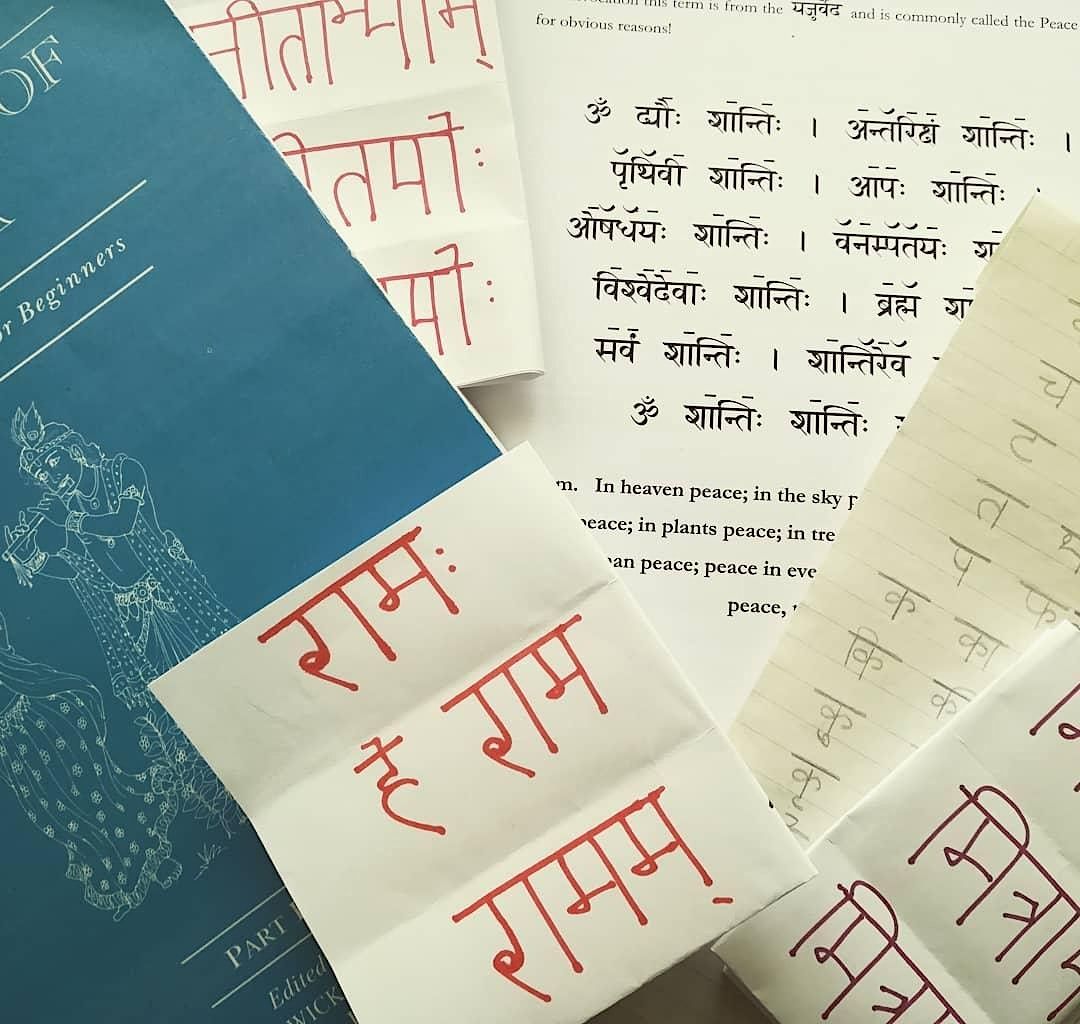 OF
or Beginners
PART
Edited
WICK
सीताभ्याम्
तयोः
योः
this term is from the यजुर्वेद and is commonly called the Peace
for obvious reasons!
ॐ द्यौः शान्तिः । अन्तरिक्षं शान्तिः ।
पृथिवी शान्तिः । आपः शान्तिः
ओषधयः शान्तिः । वनस्पतयः
विश्वेदेवाः शान्तिः । ब्रह्म
सर्वं शान्तिः । शान्तिरेव
ॐ शान्तिः शान्तिः
In heaven peace; in the sky
peace; in plants peace; in
peace; peace in
peace,
रामः
हे राम
रामम्
च
ट
त थ
प फ
क का
कि की
कु
कृ
मित्रा
मित्रा